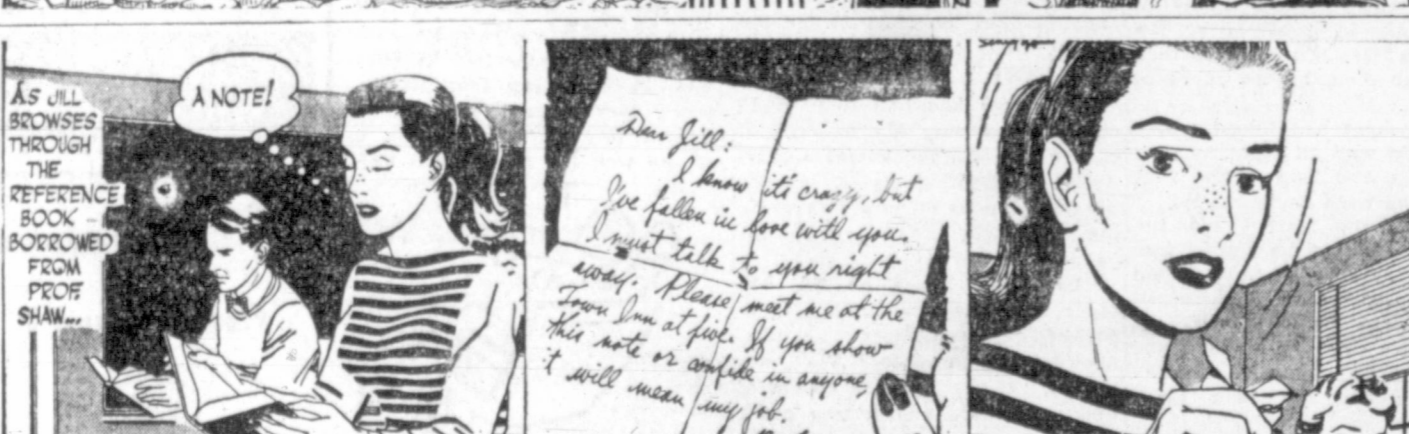 AS JILL
BROWSES
THROUGH
THE
REFERENCE
BOOK
BORROWED
FROM
PROF.
SHAW...
A NOTE!
Dear Jill:
I know it's crazy, but
I've fallen in love with you.
I must talk to you right
away. Please meet me at the
Town Inn at five. If you show
this note or confide in anyone,
it will mean my job.